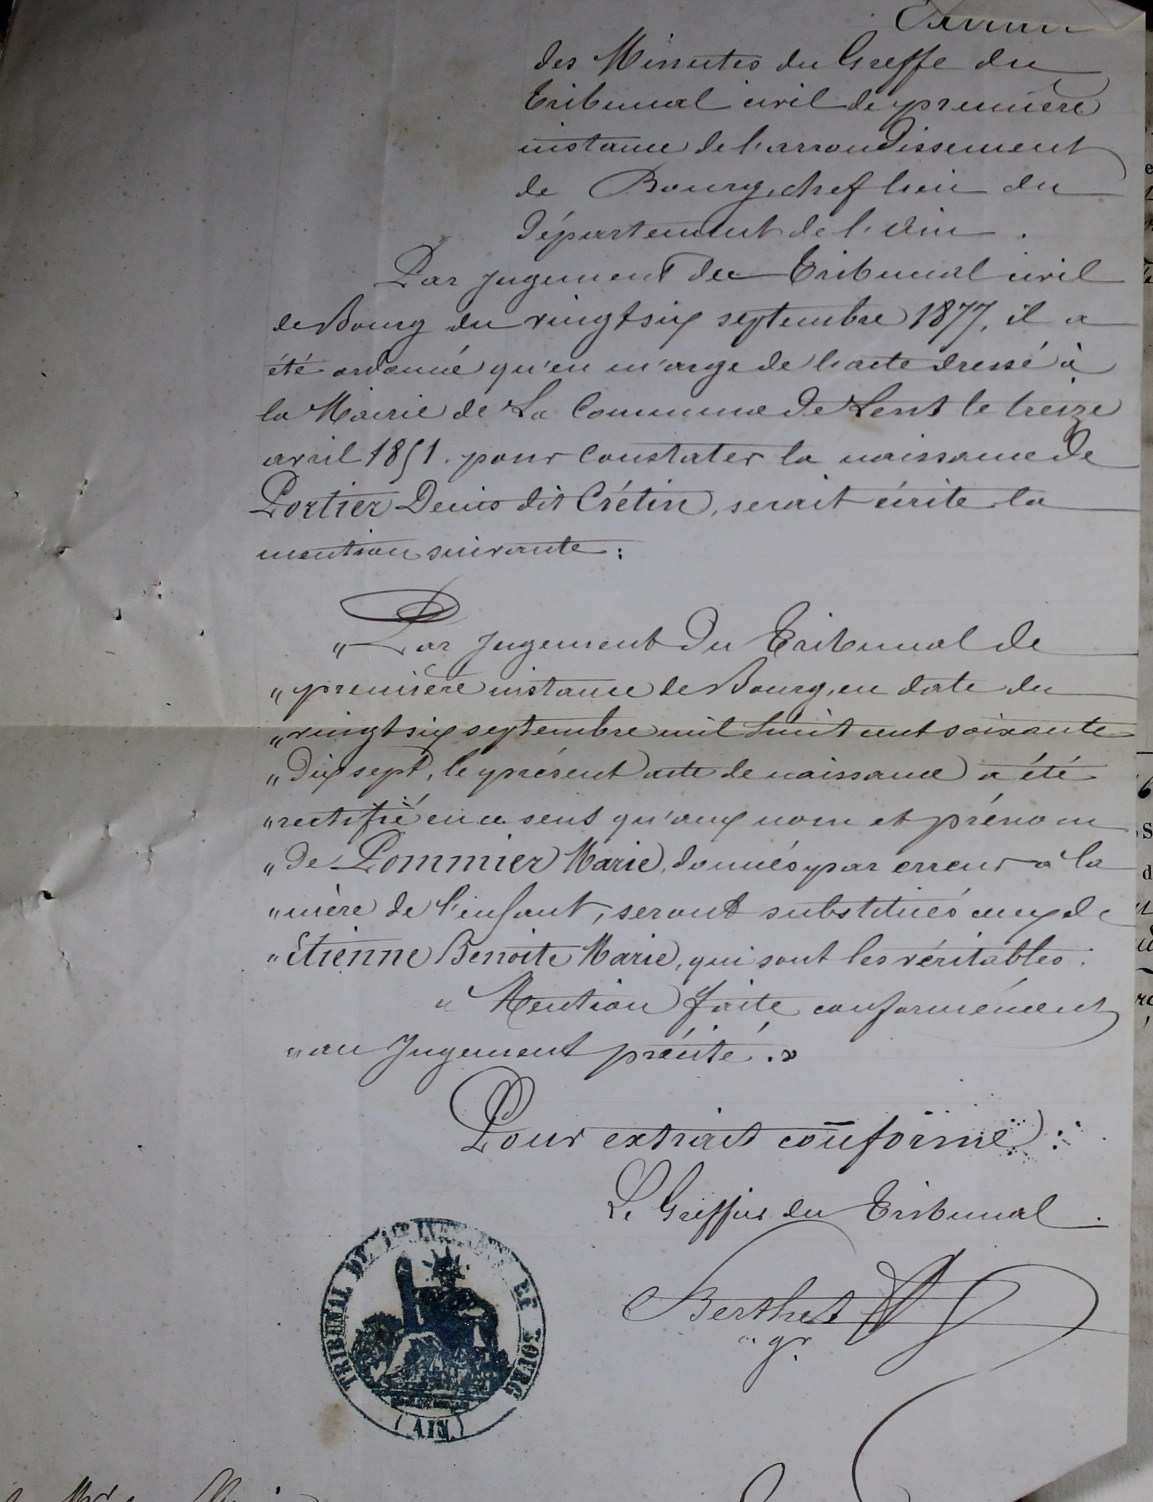 des Minutes du Greffe du
Tribunal civil de première
instance de l'arrondissement
de Bourg, chef lieu du
Département de l'Ain.
Par Jugement du Tribunal civil
de Bourg du vingt six septembre 1877, il a
été ordonné qu'en marge de l'acte dressé à
la Mairie de La Commune de Lent le treize
avril 1851. pour Constater la naissance de
Portier Denis dit Crétin, serait écrite la
mention suivante :
" Par Jugement du Tribunal de
" première instance de Bourg, en date du
" vingt six septembre mil huit cent soixante
" Dix sept, le présent acte de naissance a été
" rectifié en ce sens qu'aux nom et prénom
" de Pommier Marie, donnés par erreur à la
" mère de l'enfant, seront substitués ceux de
" Etienne Benoite Marie, qui sont les véritables.
" Mention faite conformément
" au Jugement précité. »
Pour extrait conforme :
Le Greffier du Tribunal.
Berthet
gr
TRIBUNAL DE 1ERE INSTANCE DE BOURG
(AIN)